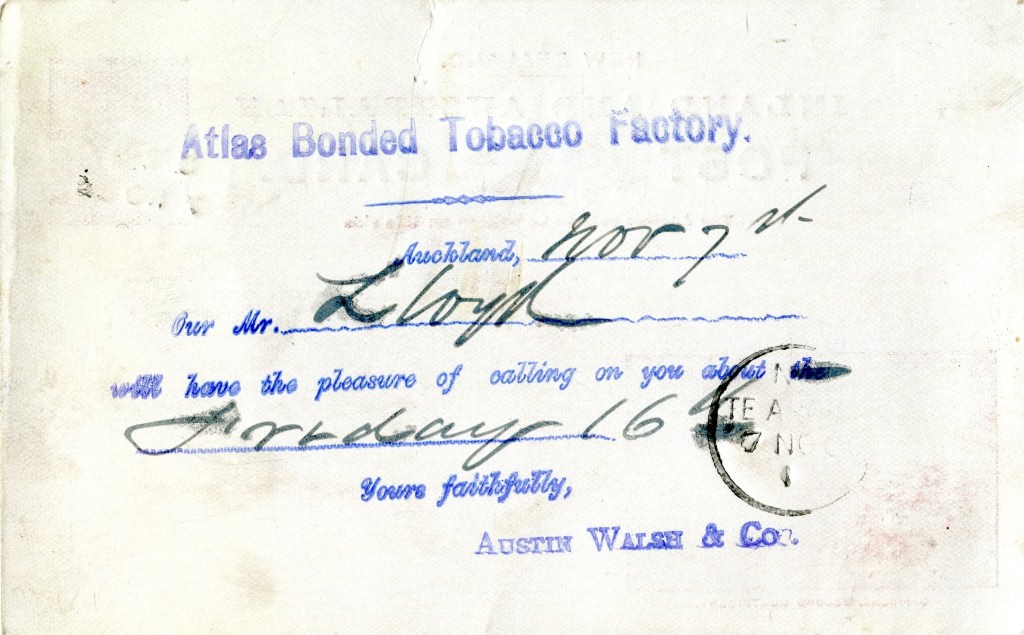 Atlas Bonded Tobacco Factory.
Auckland, Nov 7th
Our Mr. Lloyd
will have the pleasure of calling on you about the
Friday 16th
Yours faithfully,
AUSTIN WALSH & CO.
TE A
7 NO